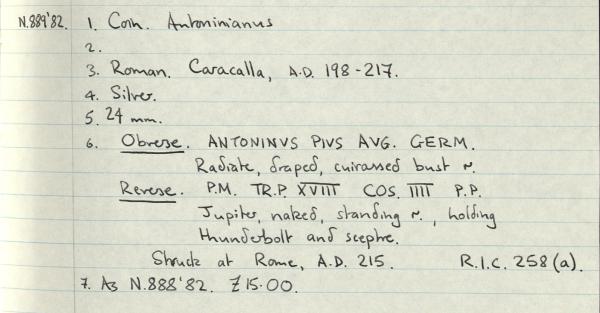 N.889'82. 1. Coin. Antoninianus
2.
3. Roman. Caracalla, A.D. 198-217.
4. Silver.
5. 24 mm.
6. Obverse. ANTONINVS PIVS AVG. GERM.
Radiate, draped, cuirassed bust r.
Reverse. P.M. TR.P XVIII COS. IIII P.P.
Jupiter, naked, standing r., holding
thunderbolt and sceptre.
Struck at Rome, A.D. 215. R.I.C. 258(a).
7. As N.888'82. £15.00.